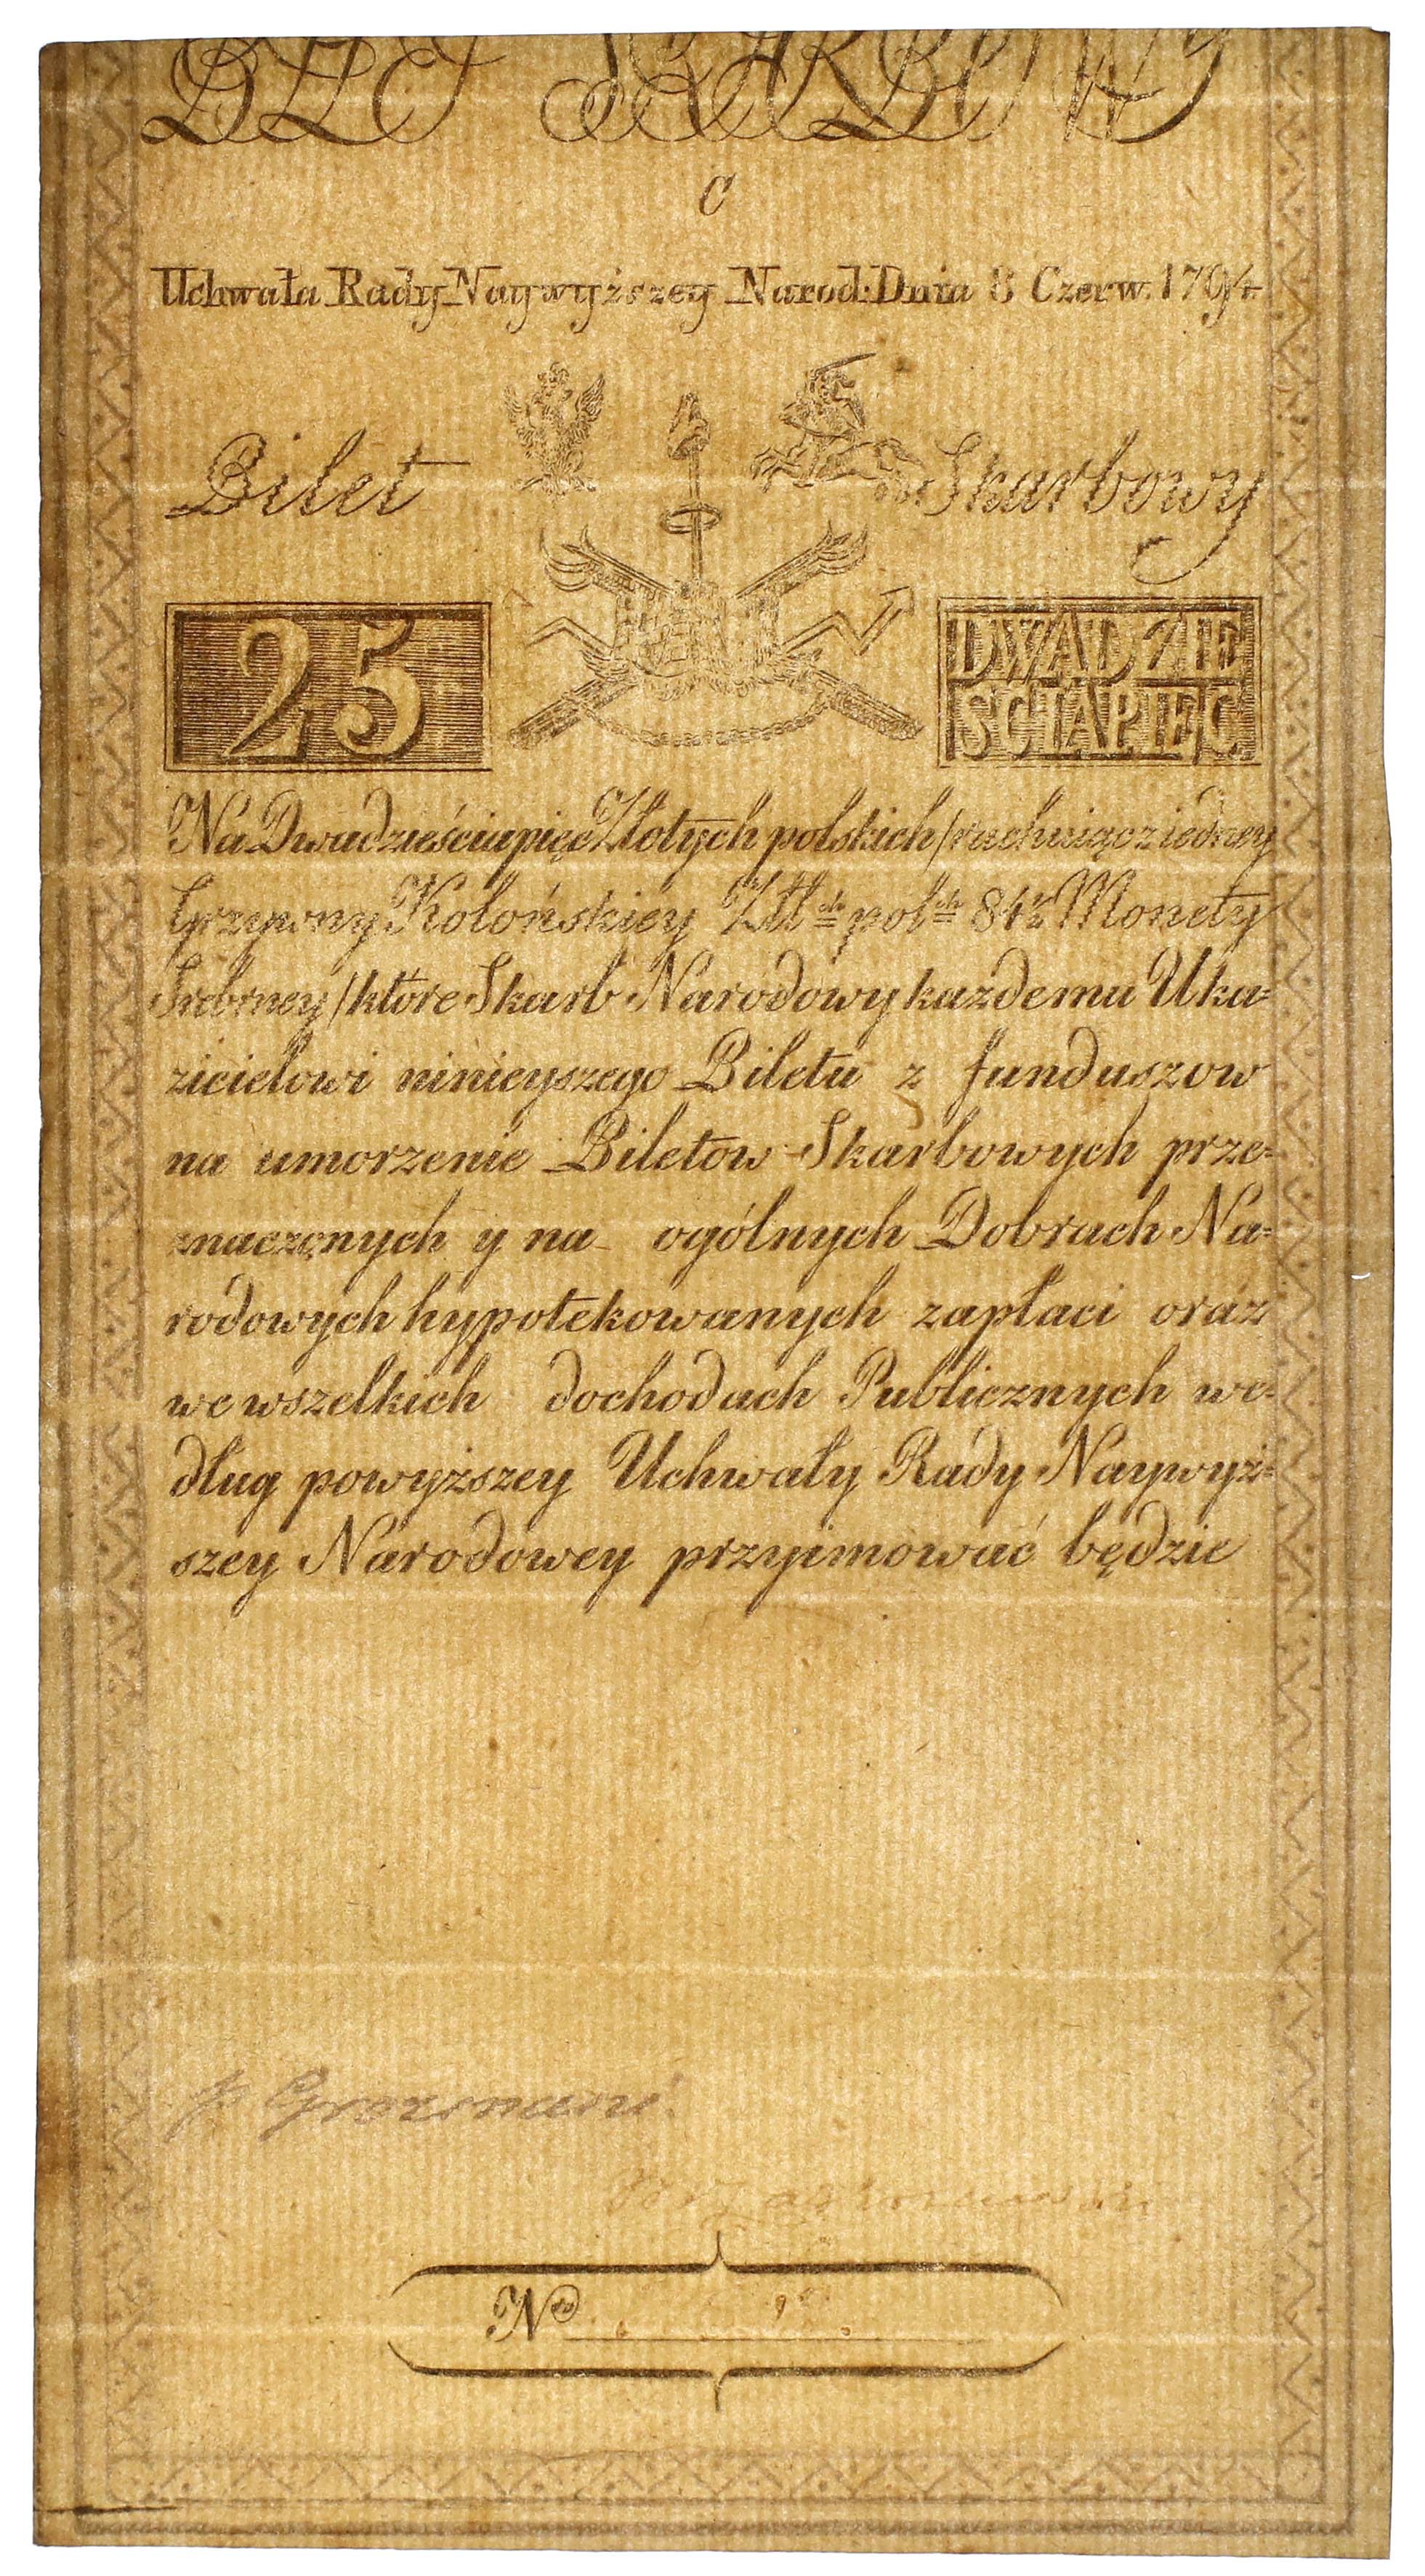 C
Uchwała Rady Naywyższey Narod: Dnia 8 Czerw. 1794
Bilet Skarbowy
25
DWADZIE
SCIAPIĘĆ
Na Dwadzieściapięć Złotych polskich /rachuiąc z iedney
Grzywny Kolońskiey Złł ch pol ch 84½ Monety
Srebrney/ które Skarb Narodowy każdemu Uka=
zicielowi ninieyszego Biletu z funduszow
na umorzenie Biletow Skarbowych prze=
znaczonych y na ogólnych Dobrach Na=
rodowych hypotekowanych zapłaci oraz
we wszelkich dochodach Publicznych we=
dług powyższey Uchwały Rady Naywyż=
szey Narodowey przyimować będzie
No